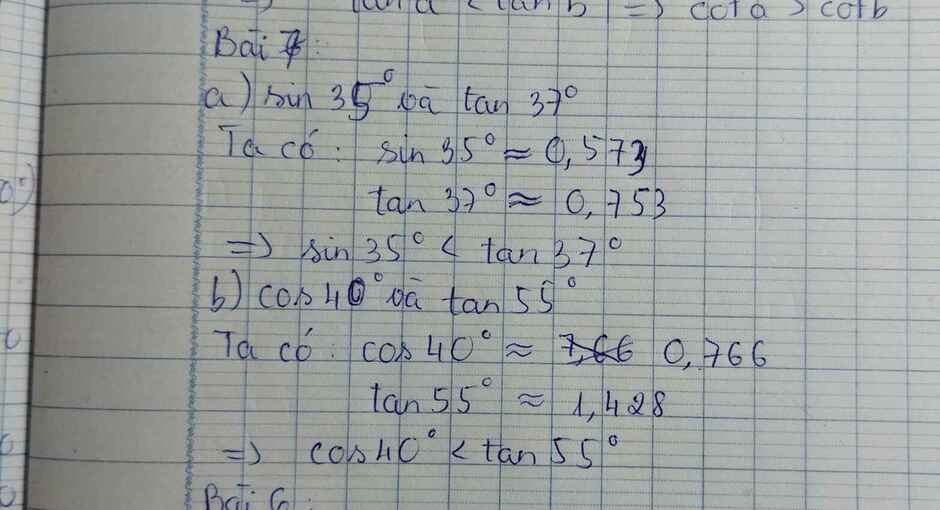 => tan a < tan b => cot a > cot b
Bài 7:
a) sin 35° và tan 37°
Ta có: sin 35° ≈ 0,573
tan 37° ≈ 0,753
=> sin 35° < tan 37°
b) cos 40° và tan 55°
Ta có: cos 40° ≈ 7,66 0,766
tan 55° ≈ 1,428
=> cos 40° < tan 55°
Bài 6: